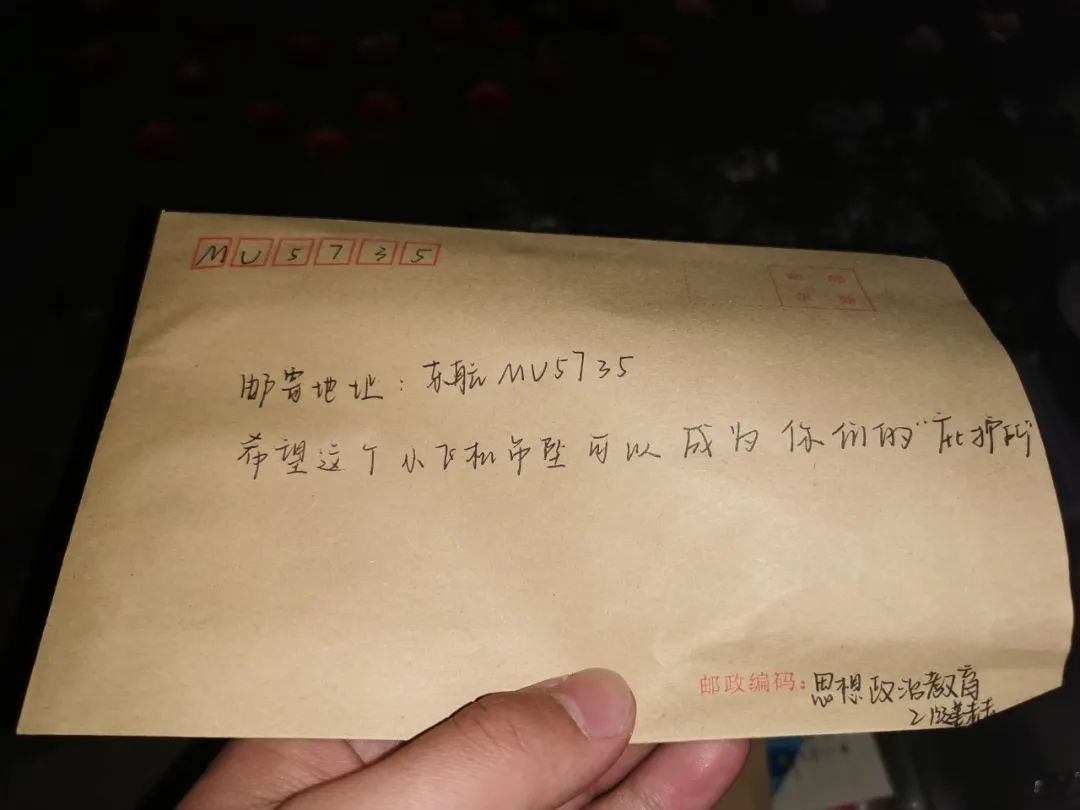 MU5735
邮寄地址:东航MU5735
希望这个小飞机吊坠可以成为你们的"庇护所
邮政编码:思想政治教育